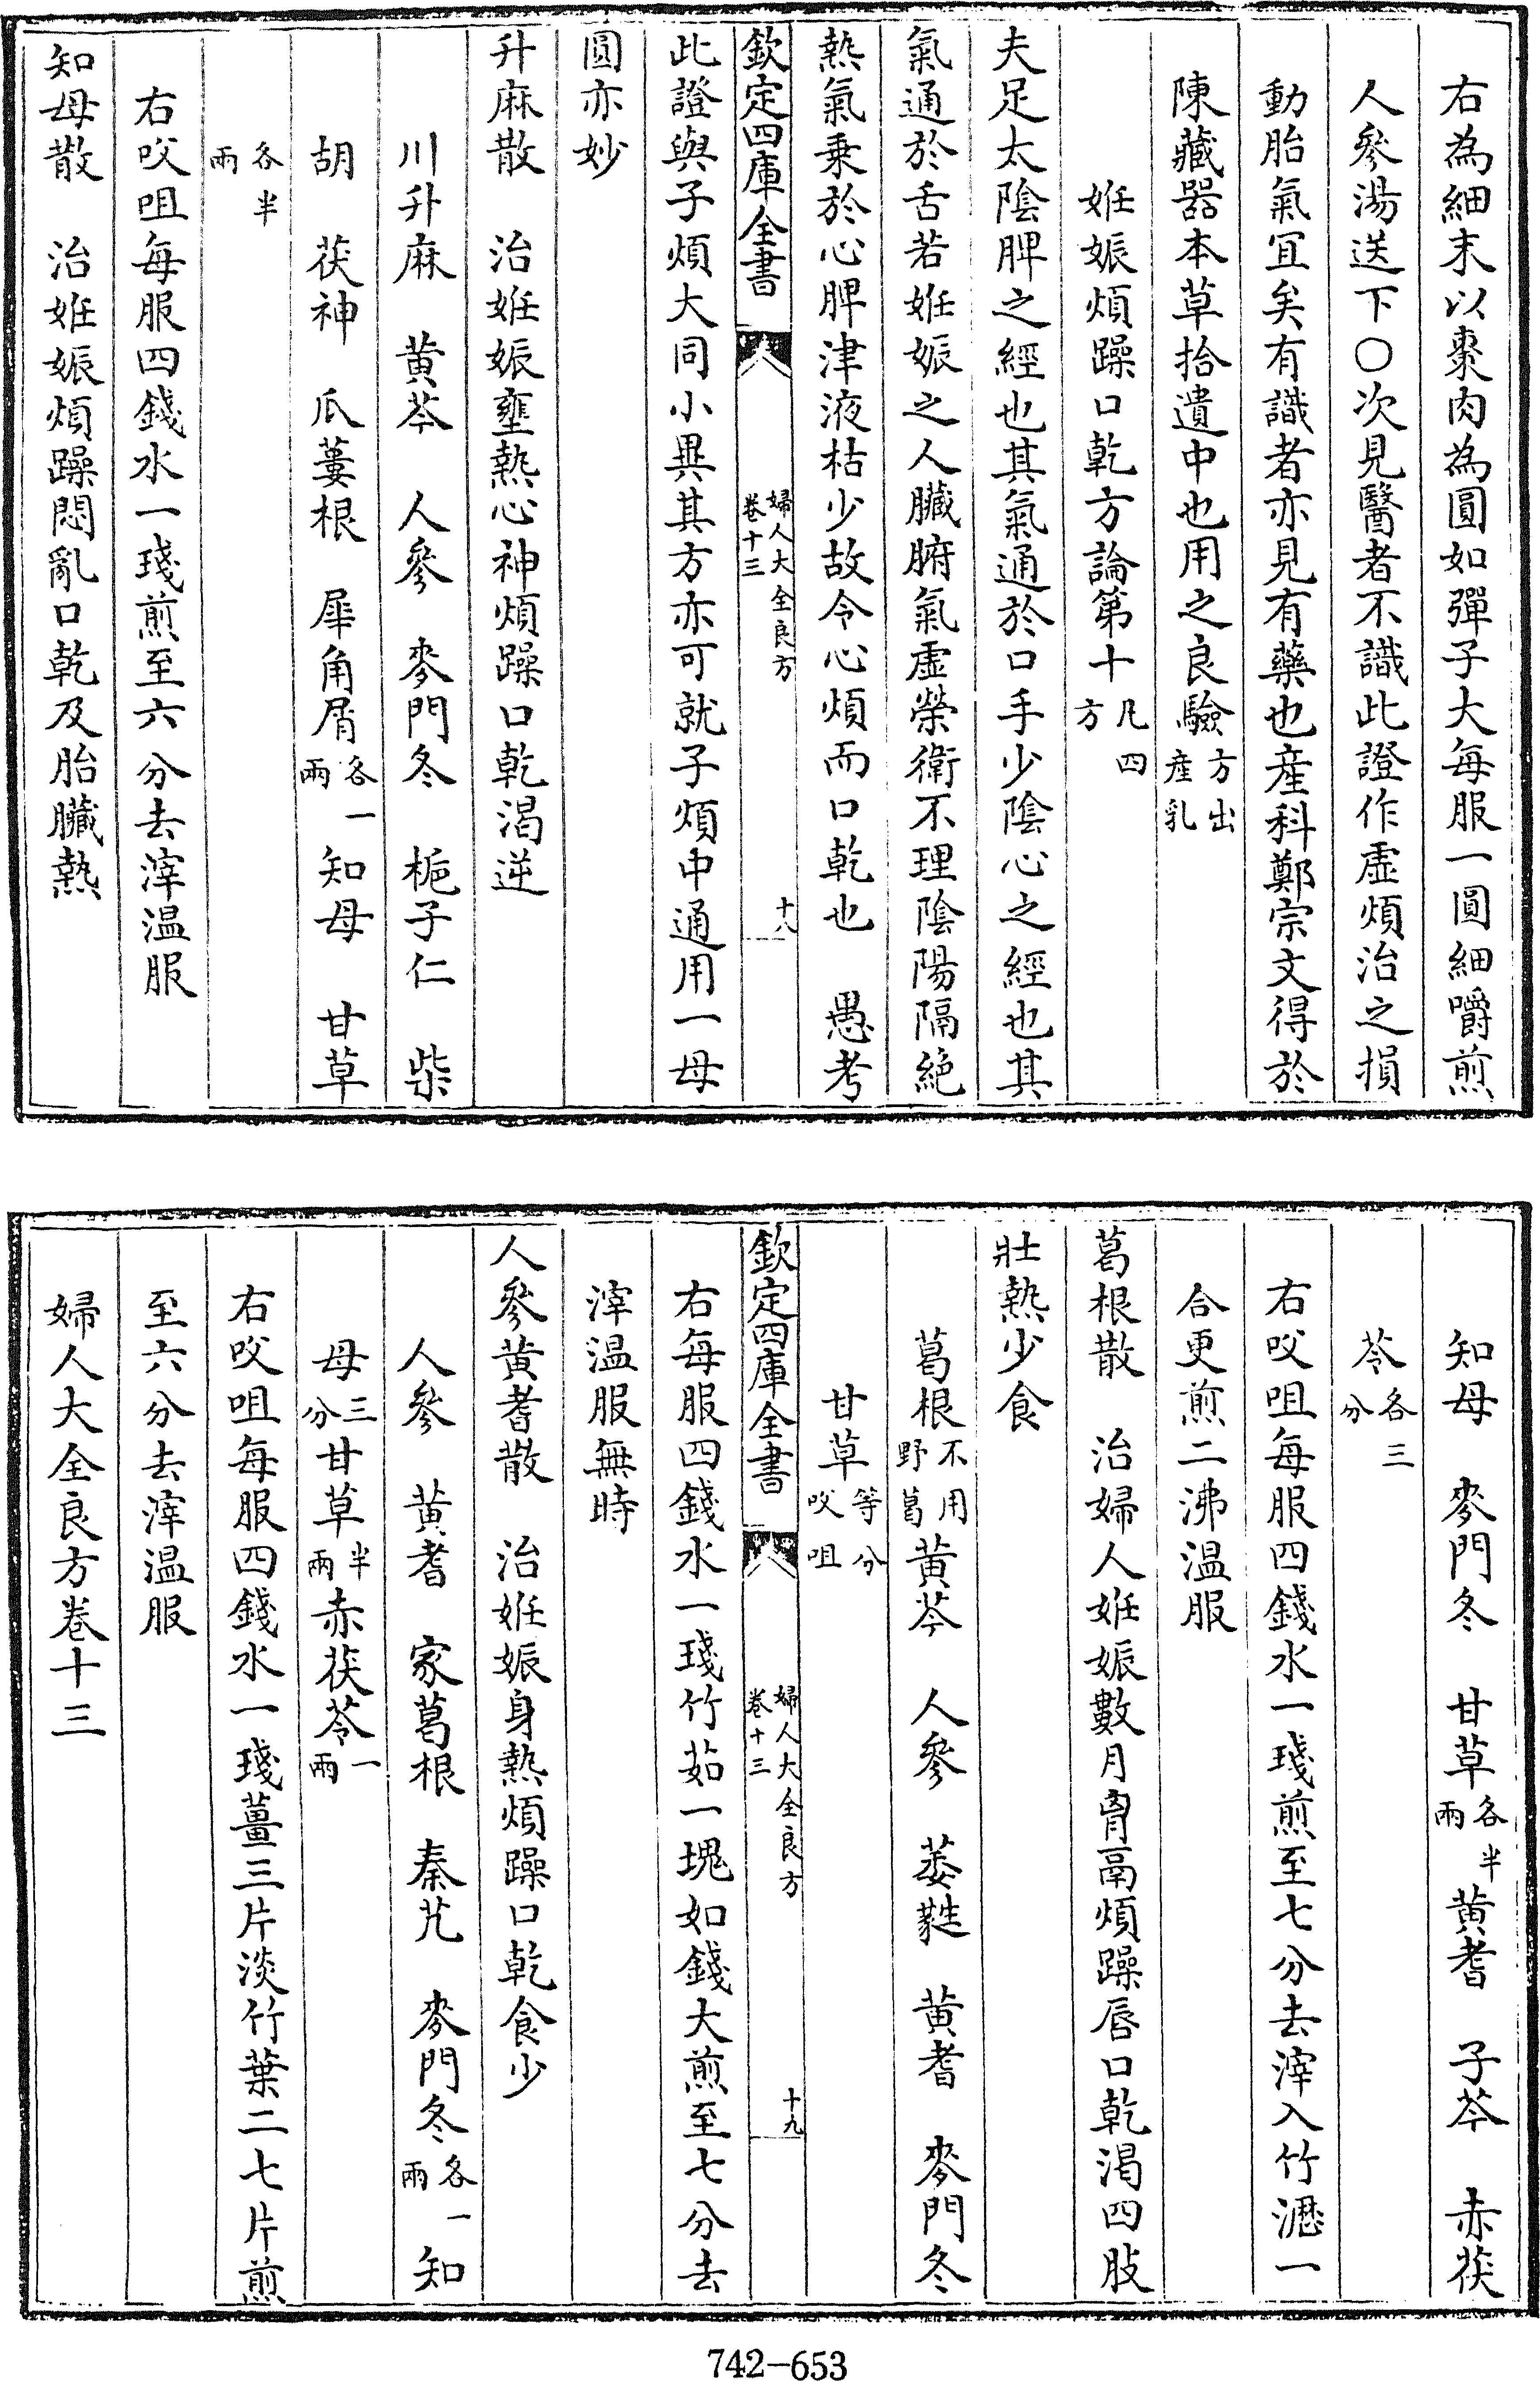 右為細末以棗肉為圓如彈子大每服一圓細嚼煎
人參湯送下〇次見醫者不識此證作虛煩治之損
動胎氣宜矣有識者亦見有藥也産科鄭宗文得於
陳藏器本草拾遺中也用之良驗方出産乳
姙娠煩躁口乾方論第十凡四方
夫足太陰脾之經也其氣通於口手少陰心之經也其
氣通於舌若姙娠之人臟腑氣虛榮衛不理陰陽隔絶
熱氣乗於心脾津液枯少故令心煩而口乾也　愚考
欽定四庫全書　婦人大全良方卷十三　十八
此證與子煩大同小異其方亦可就子煩中通用一母
圓亦妙
升麻散　治姙娠壅熱心神煩躁口乾渴逆
川升麻　黄芩　人參　麥門冬　梔子仁　柴
胡　茯神　瓜蔞根　犀角屑各一兩　知母　甘草
各半兩
右㕮咀每服四錢水一琖煎至六分去滓温服
知母散　治姙娠煩躁悶亂口乾及胎臟熱
知母　麥門冬　甘草各半兩　黄耆　子芩　赤茯
苓各三分
右㕮咀每服四錢水一琖煎至七分去滓入竹瀝一
合更煎二沸温服
葛根散　治婦人姙娠數月胷鬲煩躁唇口乾渴四肢
壯熱少食
葛根不用野葛　黄芩　人參　萎蕤　黄耆　麥門冬
甘草等分㕮咀
欽定四庫全書　婦人大全良方卷十三　十九
右每服四錢水一琖竹茹一塊如錢大煎至七分去
滓温服無時
人參黄耆散　治姙娠身熱煩躁口乾食少
人參　黄耆　家葛根　秦艽　麥門冬各一兩　知
母三分　甘草半兩　赤茯苓一兩
右㕮咀每服四錢水一琖薑三片淡竹葉二七片煎
至六分去滓温服
婦人大全良方卷十三
742-653